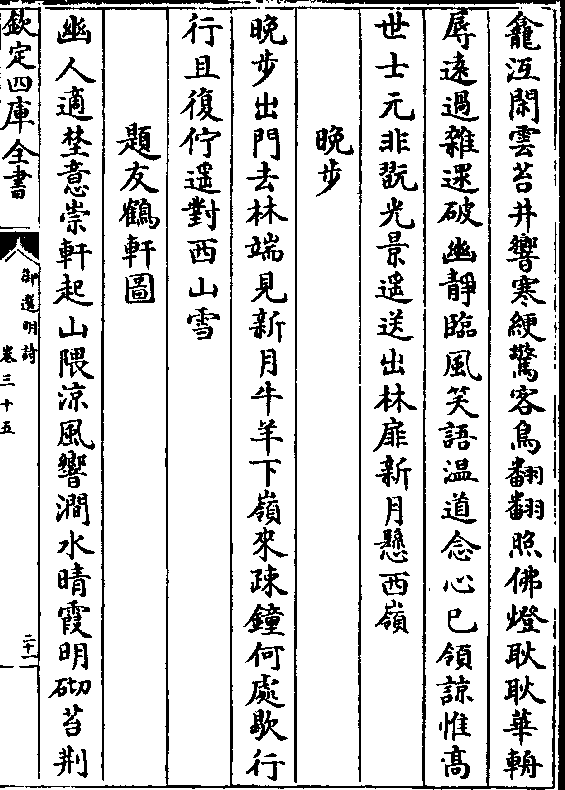 龕沍閑雲苔井響寒綆驚客鳥翻翻照佛燈耿耿華輈
辱遠過雜遝破幽靜臨風笑語温道念心已領諒惟高
世士元非翫光景遥送出林扉新月懸西嶺
晚步
晚步出門去林端見新月牛羊下嶺來疎鐘何處歇行
行且復佇遥對西山雪
題友鶴軒圖
幽人適埜意崇軒起山隈涼風響澗水晴霞明砌苔荆
欽定四庫全書
御選明詩
卷三十五
二十一